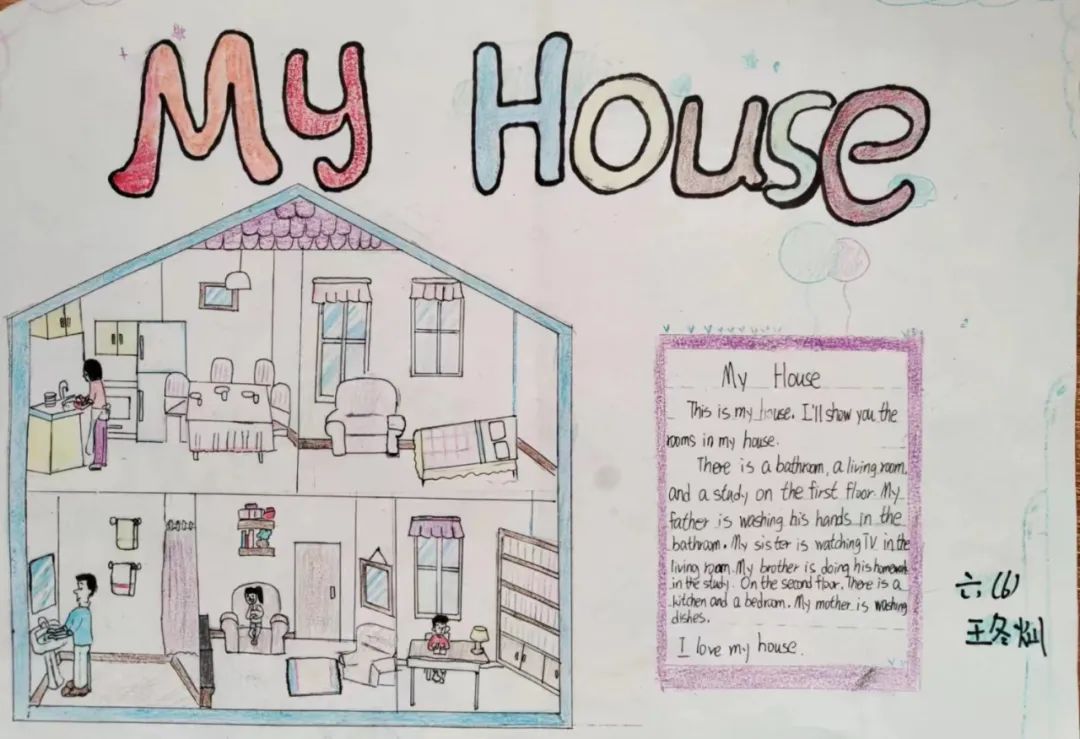 My House
My House
This is my house. I'll show you the
rooms in my house.
There is a bathroom, a living room,
and a study on the first floor. My
father is washing his hands in the
bathroom. My sister is watching TV in the
living room. My brother is doing his homework
in the study. On the second floor. There is a
kitchen and a bedroom. My mother is washing
dishes.
I love my house.
六(6)
王冬灿